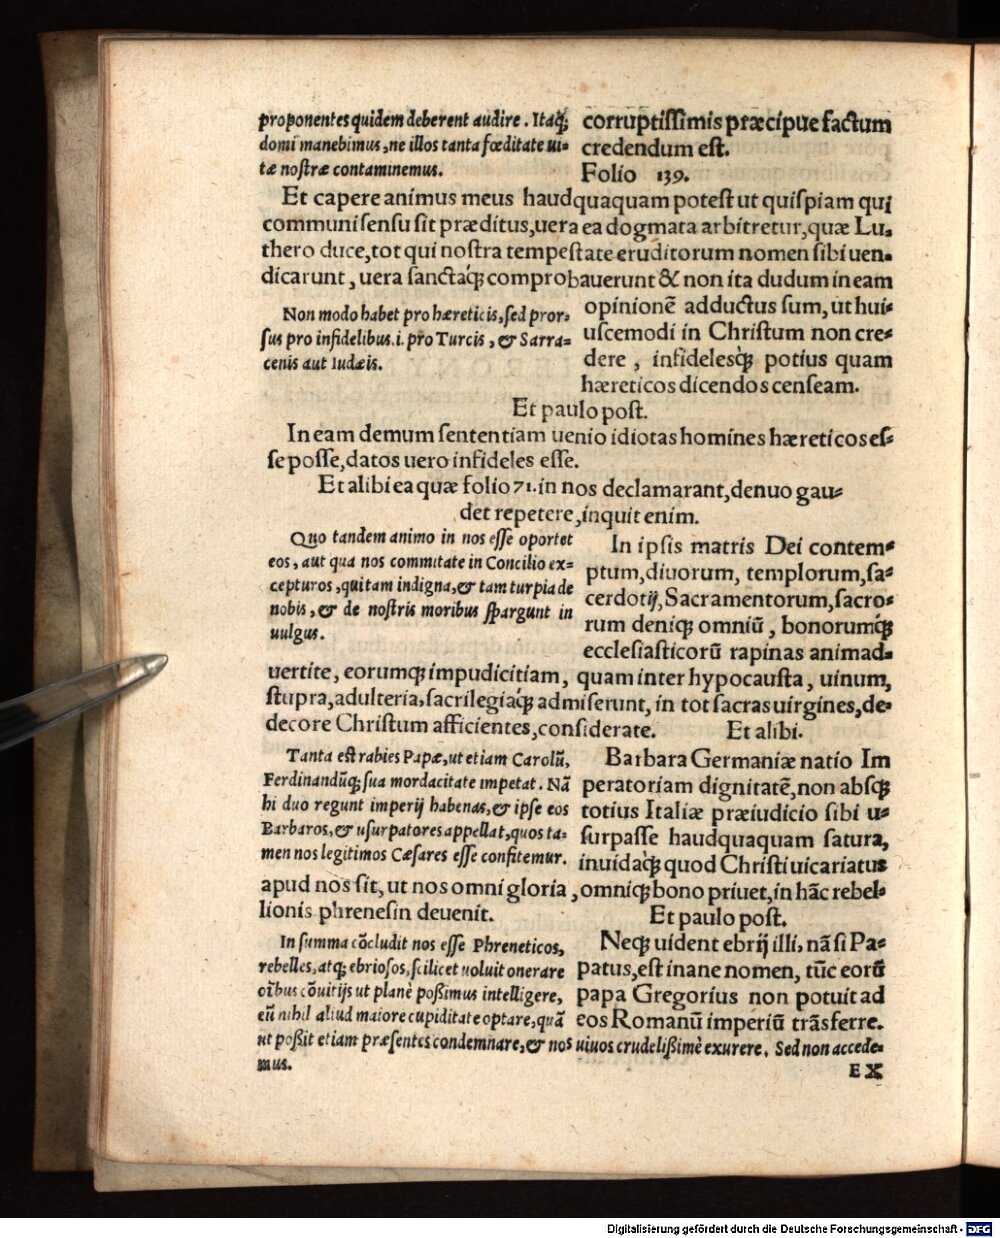 proponentes quidem deberent audire. Itaqꝫ
domi manebimus, ne illos tanta fœditate ui-
tæ nostræ contaminemus.
corruptissimis præcipue factum
credendum est.
Folio 139.
Et capere animus meus haudquaquam potest ut quispiam qui
communi sensu sit præditus, uera ea dogmata arbitretur, quæ Lu-
thero duce, tot qui nostra tempestate eruditorum nomen sibi uen-
dicarunt, uera sanctaqꝫ comprobauerunt & non ita dudum in eam
Non modo habet pro hæreticis, sed pror-
sus pro infidelibus .i. pro Turcis, & Sarra-
cenis aut Iudæis.
opinionē adductus sum, ut hui-
uscemodi in Christum non cre-
dere, infidelesqꝫ potius quam
hæreticos dicendos censeam.
Et paulo post.
In eam demum sententiam uenio idiotas homines hæreticos es-
se posse, datos uero infideles esse.
Et alibi ea quæ folio 71. in nos declamarant, denuo gau-
det repetere, inquit enim.
Quo tandem animo in nos esse oportet
eos, aut qua nos commitate in Concilio ex-
cepturos, qui tam indigna, & tam turpia de
nobis, & de nostris moribus spargunt in
uulgus.
In ipsis matris Dei contem-
ptum, diuorum, templorum, sa-
cerdotij, Sacramentorum, sacro-
rum deniqꝫ omniū, bonorumqꝫ
ecclesiasticorū rapinas animad-
uertite, eorumqꝫ impudicitiam, quam inter hypocausta, uinum,
stupra, adulteria, sacrilegiaqꝫ admiserunt, in tot sacras uirgines, de-
decore Christum afficientes, considerate. Et alibi.
Tanta est rabies Papæ, ut etiam Carolū,
Ferdinandūqꝫ sua mordacitate impetat. Nā
hi duo regunt imperij habenas, & ipse eos
Barbaros, & usurpatores appellat, quos ta-
men nos legitimos Cæsares esse confitemur.
Barbara Germaniæ natio Im
peratoriam dignitatē, non absqꝫ
totius Italiæ præiudicio sibi u-
surpasse haudquaquam satura,
inuidaqꝫ quod Christi uicariatus
apud nos sit, ut nos omni gloria, omniqꝫ bono priuet, in hāc rebel-
lionis phrenesin deuenit. Et paulo post.
In summa cōcludit nos esse Phreneticos,
rebelles, atqꝫ ebriosos, scilicet uoluit onerare
oībus cōuitijs ut planè poßimus intelligere,
eū nihil aliud maiore cupiditate optare, quā
Neqꝫ uident ebrij illi, nā si Pa-
patus, est inane nomen, tūc eorū
papa Gregorius non potuit ad
eos Romanū imperiū trāsferre.
ut poßit etiam præsentes condemnare, & nos uiuos crudelißimè exurere. Sed non accede-
mus.
EX
Digitalisierung gefördert durch die Deutsche Forschungsgemeinschaft - DFG